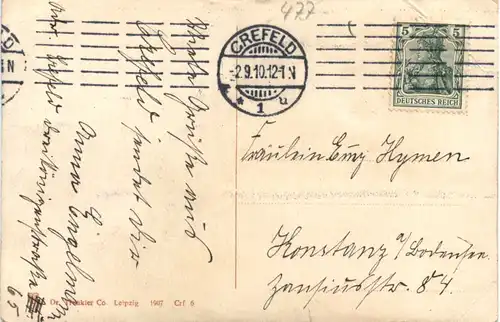 477-
CREFELD
-2.9.10.12-1N
* 1 u
5 5
DEUTSCHES REICH
Fräulein Emy Hymen
Konstanz a/Bodensee.
84
Beste Grüße aus
Crefeld sendet Dir
Anna
Dr. Trenkler Co. Leipzig 1907 Crf 6
65